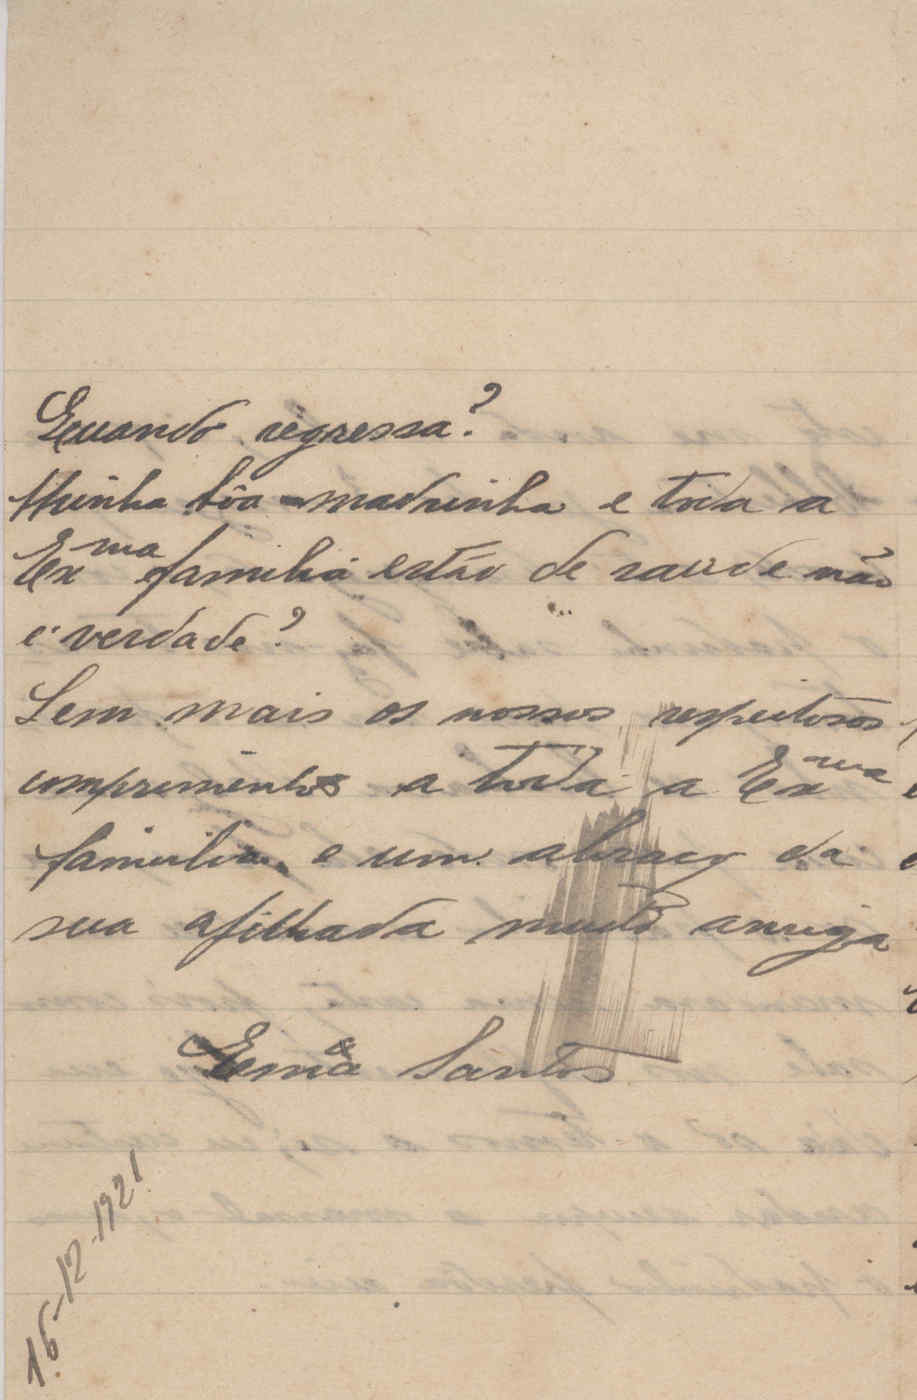 Quando regressa?
Minha bôa madrinha e toda a
Ex.ma familia estão de saude não
é verdade?
Sem mais os nossos respeitosos
comprimentos a toda a Ex.ma
familia e um abraço da
sua afilhada muito amiga
Santos
16-12-1921